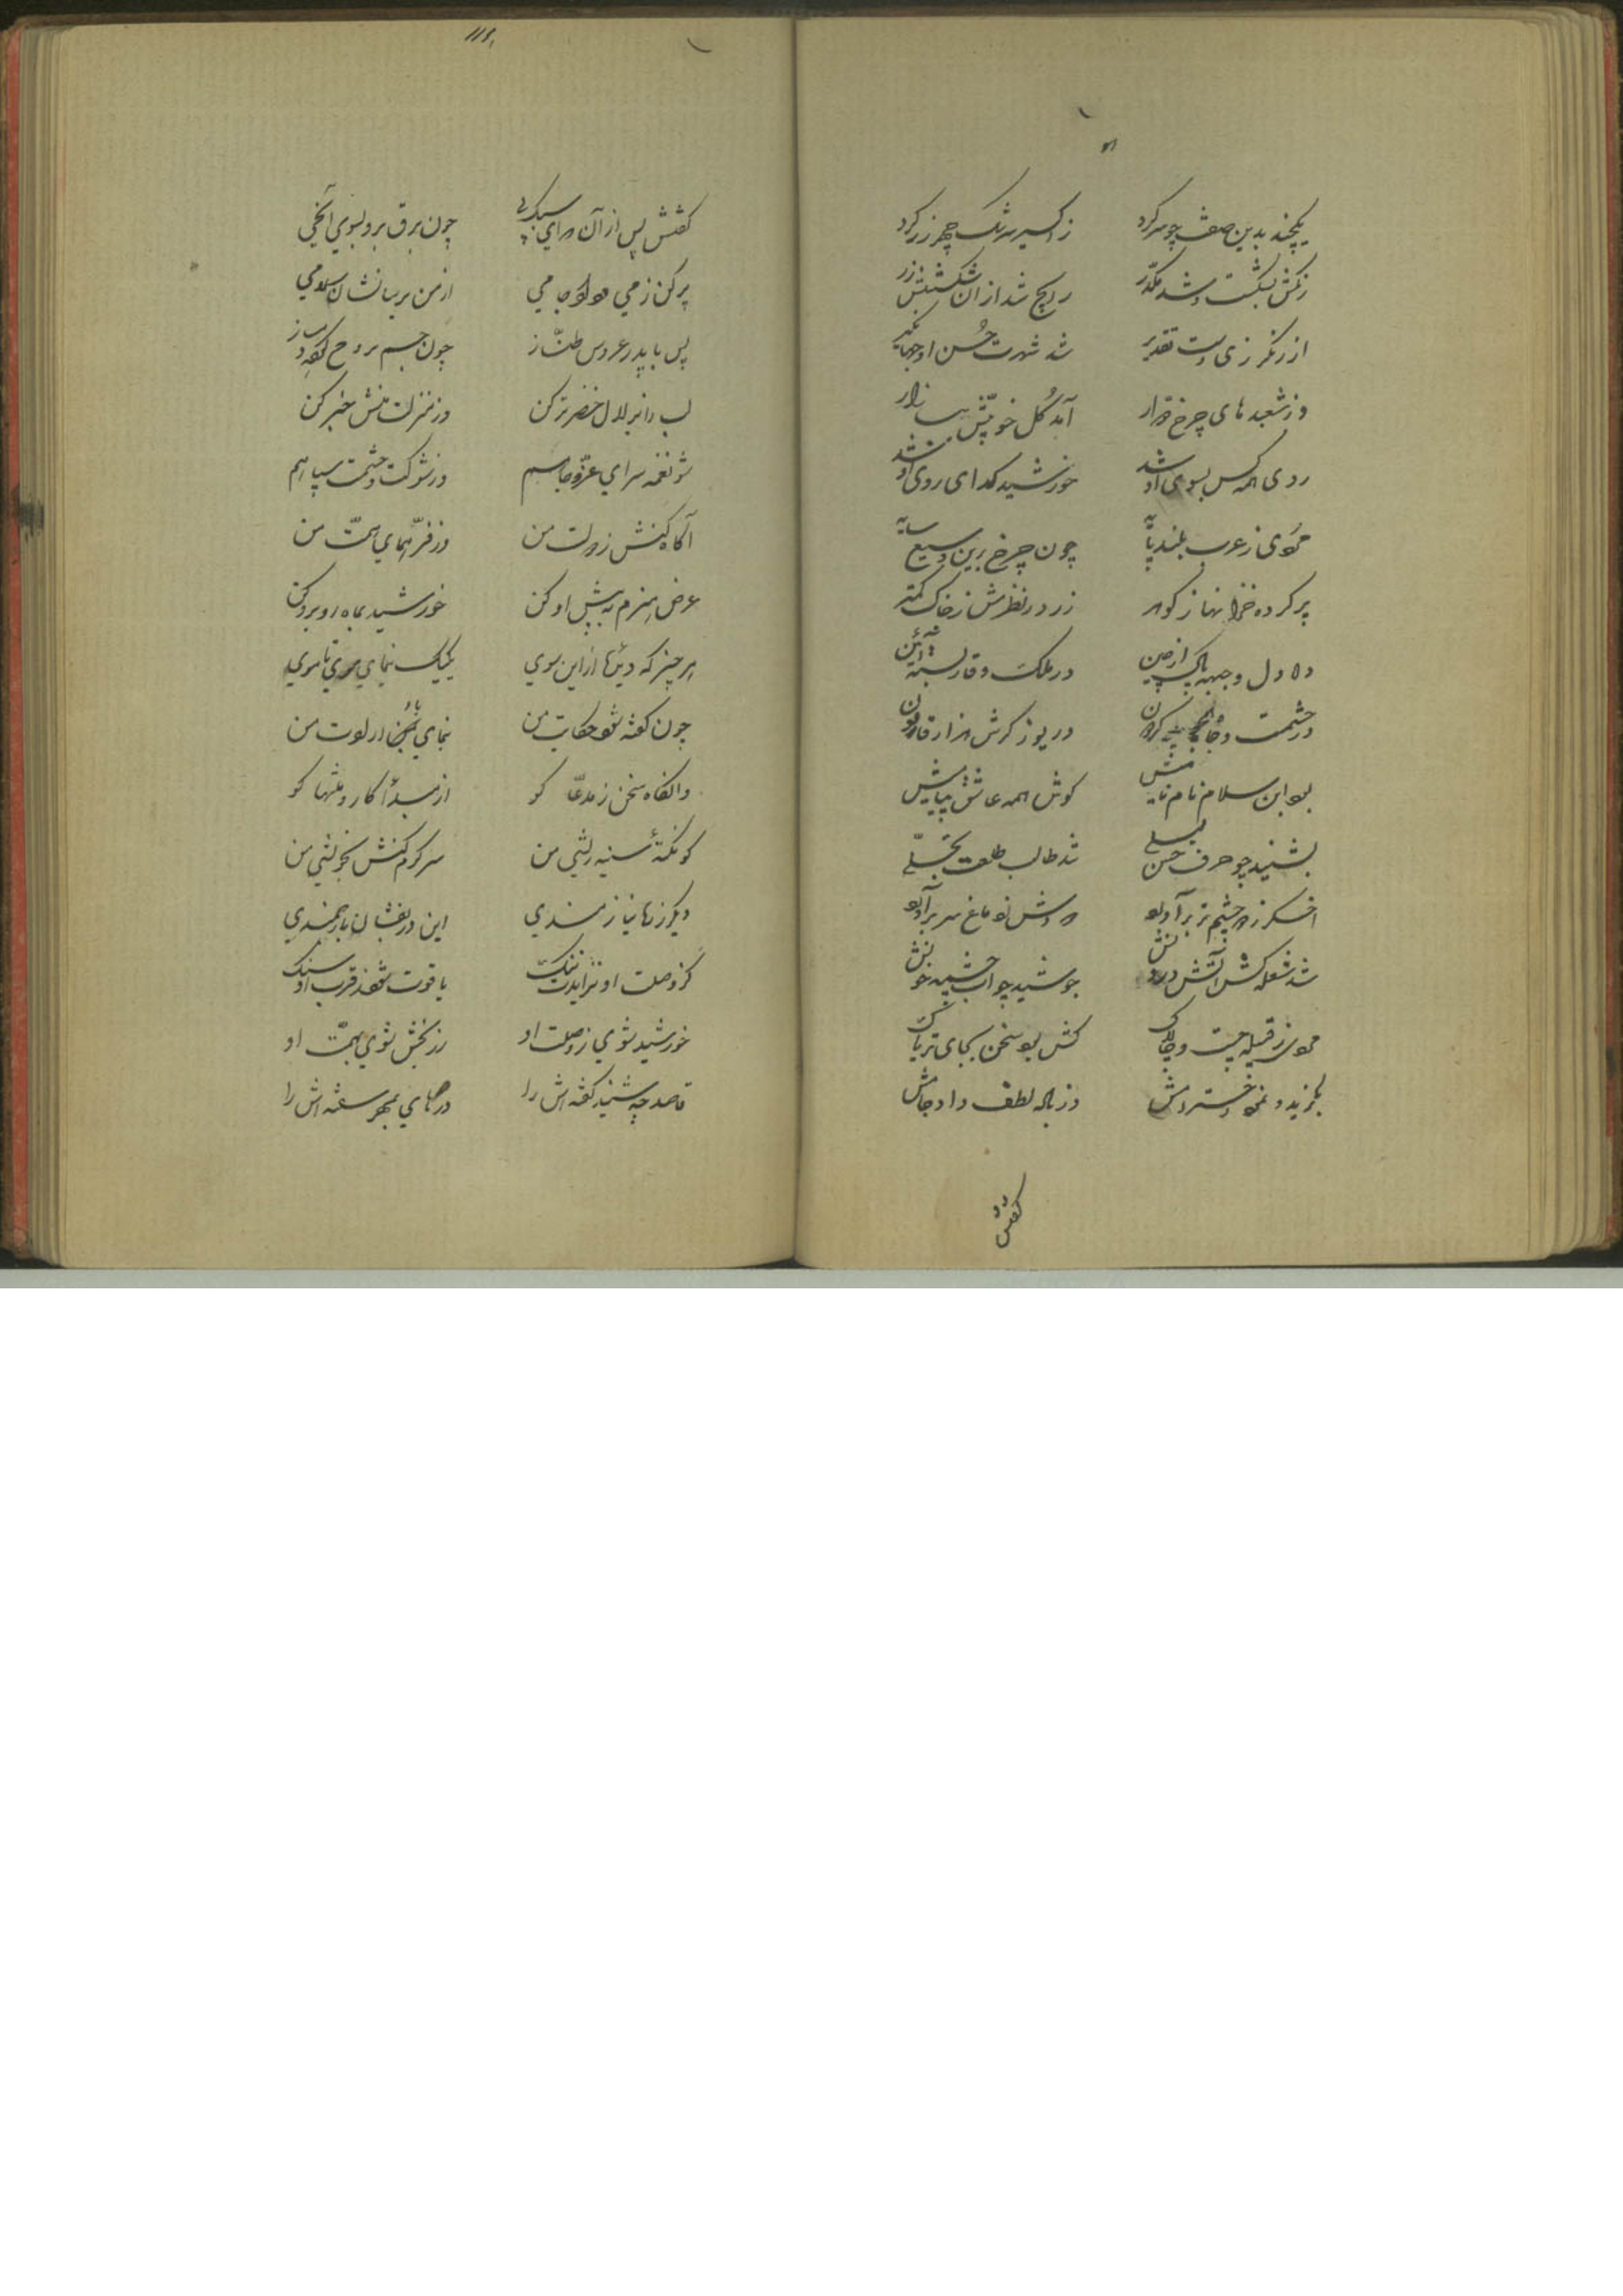 یکچند بدین صفت چو سر کرد
ز اکسیر سرشک چهره زر کرد
رنگش بشکست و شد مکدر
رایج شد از آن شکستش زر
از رنگرزی دست تقدیر
شد شهرت حسن او جهانگیر
وز شعبدهای چرخ
آمد گل خوبیش ببازار
روی همه کس بسوی او شد
خورشید گدای روی او شد
مردی ز عرب بلند پایه
چون چرخ برین وسیع سایه
پر کرده خزانها ز گوهر
زر در نظرش ز خاک کمتر
در ملک وقار بسته آئین
در حشمت و جاه
دریوزه گرش هزار قارون
بود ابن سلام نام نامیش
گوش همه عاشق پیامیش
بشنید چو حرف حسن لیلی
شد طالب طلعت تجلی
اخگر ز چشم تر برآورد
سودش ز دماغ سر برآورد
شد شعله کش آتش درونش
جوشید چو آب چشمه خونش
مردی ز قبیله چست و چالاک
کش بود سخن بجای تریاک
بگزید و نمود
وز باده لطف داد جامش
گفتش
گفتش پس از آن که ای سبک پی
چون برق برو بسوی آن حی
پر کن ز می درود جامی
از من برسانشان سلامی
پس با پدر عروس طناز
چون جسم بروح گفته دمساز
لب را بزلال خضر تر کن
وز منزلت منش خبر کن
شو نغمه سرای عز و جاهم
وز شوکت و حشمت سپاهم
آگاه کنش ز دولت من
وز فر همای همت من
عرض هنرم به پیش او کن
خورشید بماه روبرو کن
هر چیز که دیدها از این سوی
یکیک بنمای موی تا موی
چون گفته شود حکایت من
بنمای
وانگاه سخن ز مدعا گو
از مبدأ کار و منتها گو
گو نکته سینه ریشی من
سرگرم کنش بخویشی من
دیگر ز نیازمندی
این در بفشان بارجمندی
کز وصلت او نزایدت ننگ
یاقوت شود ز قرب او سنگ
خورشید شوی ز وصلت او
زر بخش شوی بهمت او
قاصد چو شنید گفته اش را
درهای بمهر سفته اش را